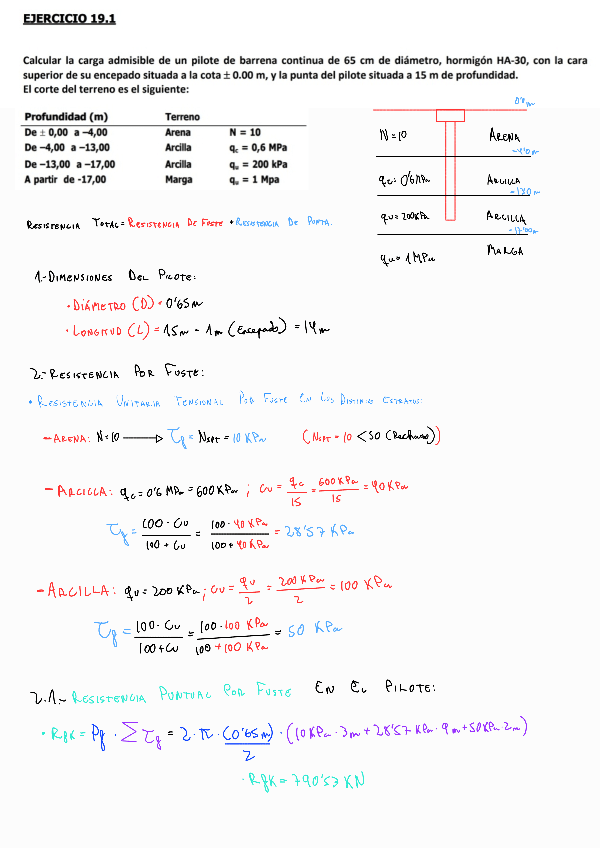 EJERCICIO 19.1
Calcular la carga admisible de un pilote de barrena continua de 65 cm de diámetro, hormigón HA-30, con la cara
superior de su encepado situada a la cota ± 0.00 m, y la punta del pilote situada a 15 m de profundidad.
El corte del terreno es el siguiente:
Profundidad (m) Terreno
De ± 0,00 a –4,00 Arena N = 10
De –4,00 a –13,00 Arcilla qc = 0,6 MPa
De –13,00 a –17,00 Arcilla qu = 200 kPa
A partir de -17,00 Marga qu = 1 Mpa
0'0 m
N = 10 ARENA
-4'0m
qc = 0'6 MPa ARCILLA
-13'0 m
qu = 200 kPa ARCILLA
-17'00m
qu = 1 MPa MARGA
RESISTENCIA TOTAL = RESISTENCIA DE FUSTE + RESISTENCIA DE PUNTA.
1.- DIMENSIONES DEL PILOTE:
· DIÁMETRO (D) = 0'65 m
· LONGITUD (L) = 15m - 1m (Encepado) = 14m
2.- RESISTENCIA POR FUSTE:
• RESISTENCIA UNITARIA TENSIONAL POR FUSTE EN LOS DISTINTOS ESTRATOS:
- ARENA: N = 10 → τf = NSPT = 10 KPa (NSPT = 10 < 50 (Rechazo))
- ARCILLA: qc = 0'6 MPa = 600 KPa ; cu = qc / 15 = 600 KPa / 15 = 40 KPa
τf = 100 · Cu / 100 + Cu = 100 · 40 KPa / 100 + 40 KPa = 28'57 KPa
- ARCILLA: qu = 200 KPa ; cu = qu / 2 = 200 KPa / 2 = 100 KPa
τf = 100 · Cu / 100 + Cu = 100 · 100 KPa / 100 + 100 KPa = 50 KPa
2.1.- RESISTENCIA PUNTUAL POR FUSTE EN EL PILOTE:
• Rfk = Pf · Σ τf = 2 · π · (0'65 m) / 2 · (10 KPa · 3m + 28'57 KPa · 9m + 50 KPa · 2m)
· Rfk = 790'53 KN